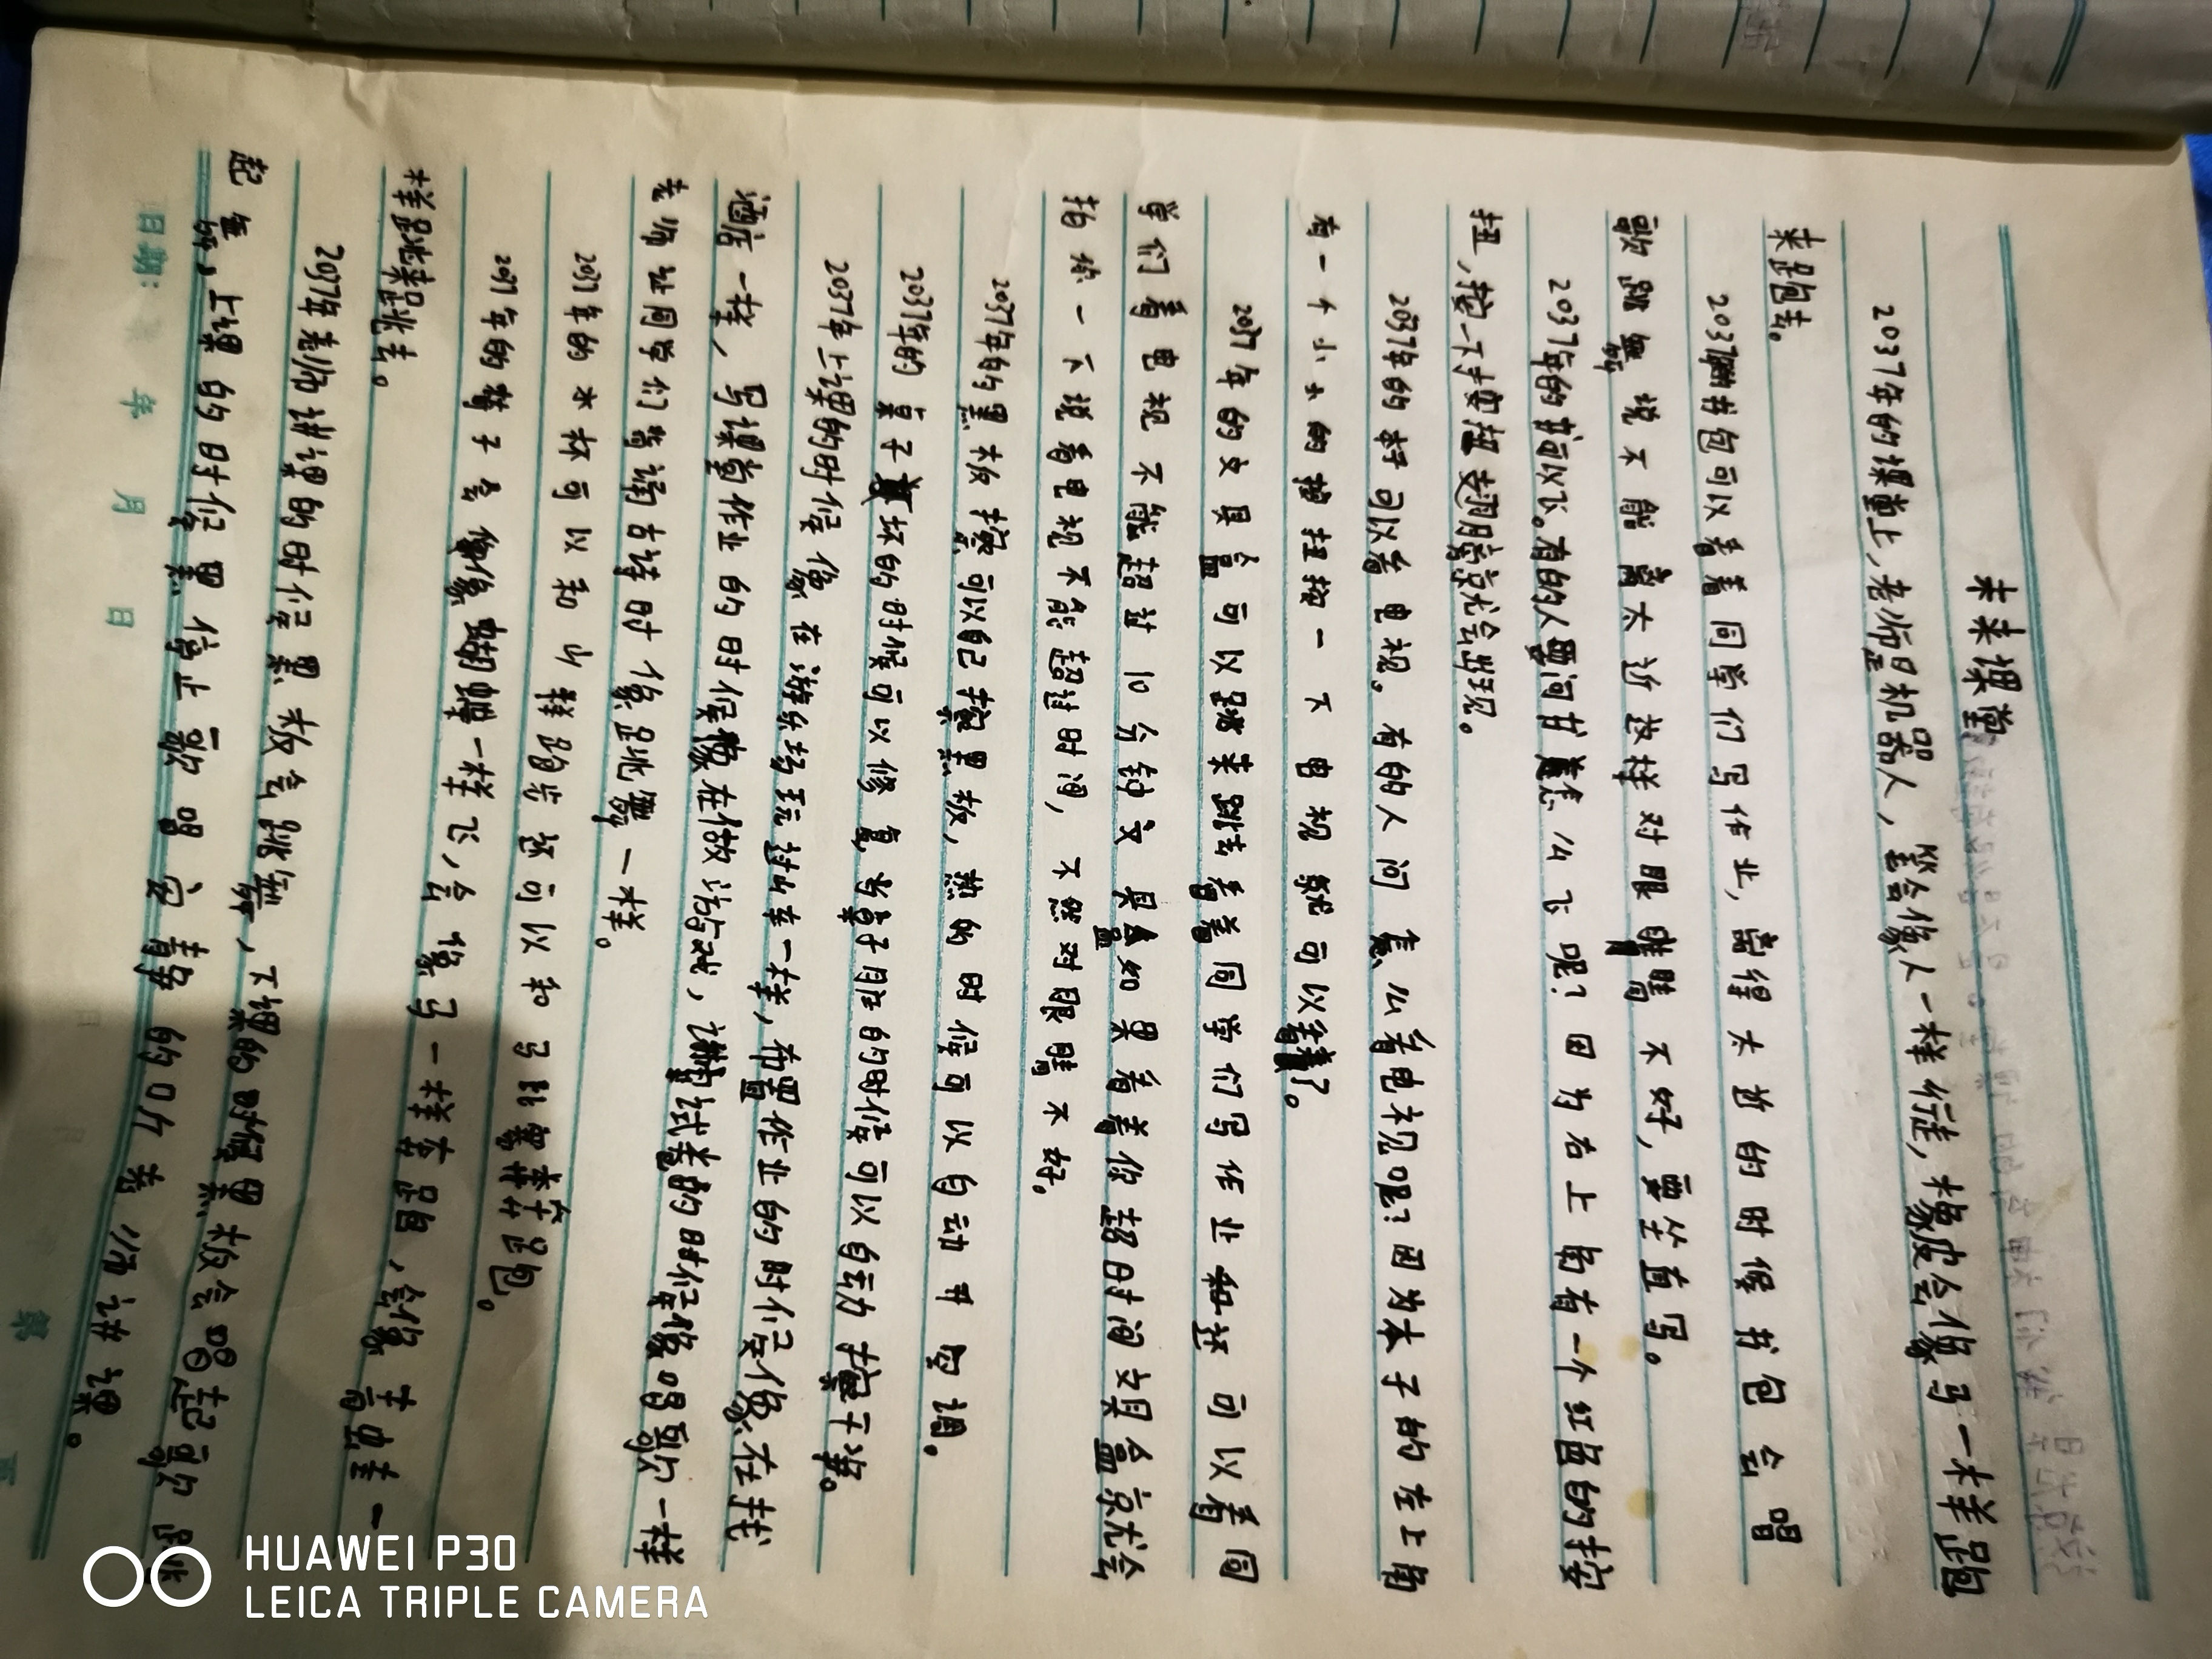 未来课堂
2037年的课堂上,老师是机器人,
会像人一样行走,橡皮会像马一样跑
来跑去。
书包可以看着同学们写作业,离得太近的时候书包会唱
歌跳舞说不能离太近这样对眼睛不好,要坐直写。
2037年的书可以飞。有的人要问
飞呢?因为右上角有一个红色的按
扭,按一下按扭翅膀就会出现。
2037年的
可以看电视。有的人问怎么看电视呢?因为本子的左上角
有一个小小的按扭按一下电视就可以看了。
2037年的文具盒可以跳来跳去看着同学们写作业和还可以看同
学们看电视不能超过10分钟文具盒如果看着你超时间文具盒就会
拍你一下说看电视不能超过时间,不然对眼睛不好。
2037年的黑板擦可以自己擦黑板,热的时候可以自动开空调。
2037年的桌子坏的时候可以修复当桌子脏的时候可以自动擦干净。
2037年上课的时候像在游乐场玩过山车一样,布置作业的时候像在找
通店一样,写课堂作业的时候像在做游戏,
试卷的时候像唱歌一样
老师让同学们背诵古诗时像跳舞一样。
2037年的水杯可以和
跑步还可以和马比赛
2037年的椅子会像蝴蝶一样飞,会像马一样奔跑,会像青蛙一
样跳来跳去。
2037年老师讲课的时候黑板会跳舞,下课的时候黑板会唱起歌跳
起舞,上课的时候黑停止歌唱安静的
老师讲课。
日期: 年 月 日
第 页
HUAWEI P30
LEICA TRIPLE CAMERA